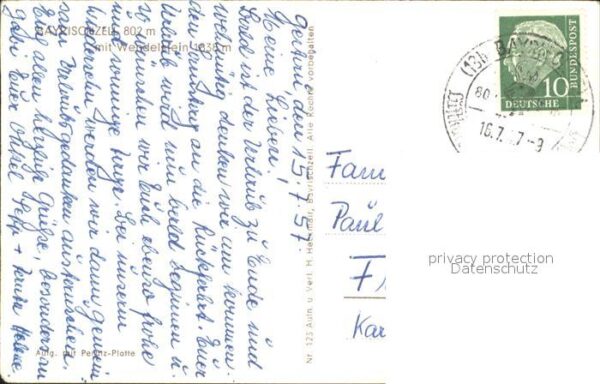 BAYRISCHZELL 802 m
mit Wendelstein 1838 m
Geitau, den 15.7.57
Meine Lieben!
Bald ist der Urlaub zu Ende und
wehmütig denken wir am kommen-
den Samstag an die Rückfahrt. Euer
Urlaub wird nun bald beginnen u.
wir wünschen wir Euch ebenso frohe
und sonnige Tage. Bei unserem
werden wir dann gemein-
sam Urlaubsgedanken austauschen.
Euch allen herzige Grüße, besonders an
Gabi Euer Onkel Sepp + Tante Helene
Nr. 125 Aufn. u. Verl. H. Bayrischzell. Alle Rechte vorbehalten
Aufg. mit Perutz-Platte
DEUTSCHE BUNDESPOST
10
(13b) BAYRISCH
16.7.57-9
Fam
Paul
F
Kar
privacy protection
Datenschutz